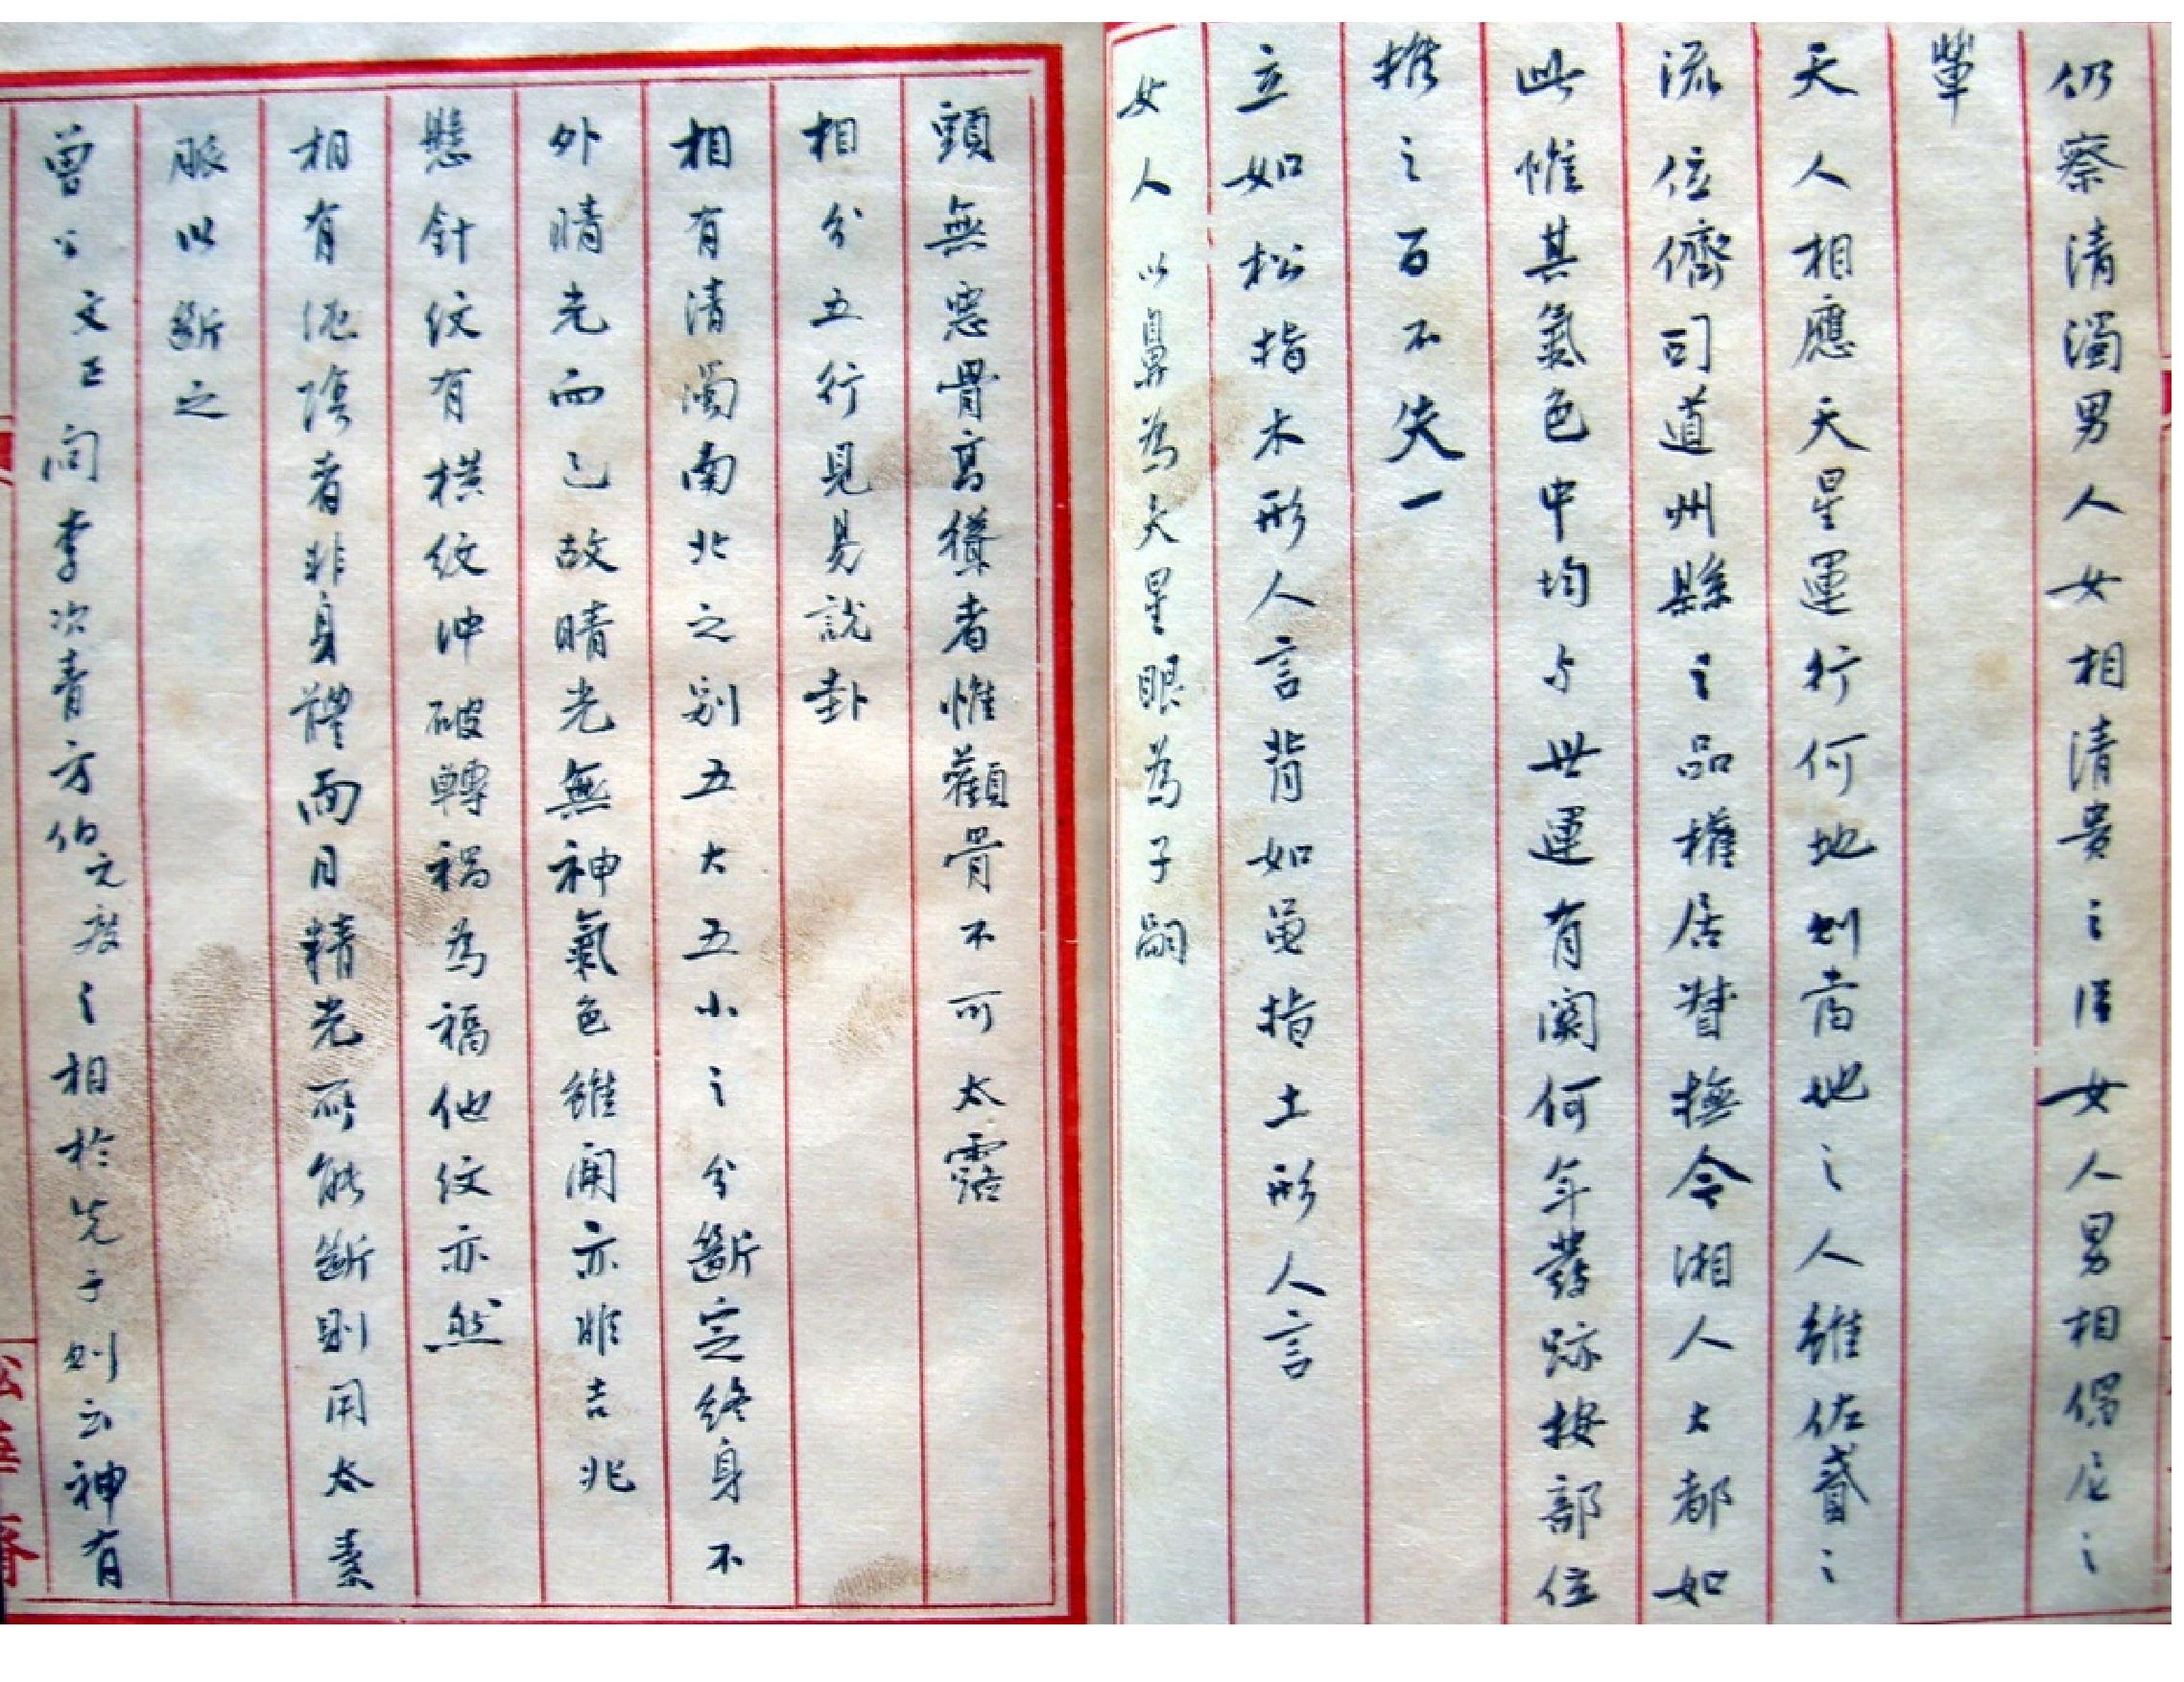 仍察清濁男人女相清貴之 女人男相 之
輩
天人相應天星運行何地則 地之人雖佐貳之
流位儕司道州縣之品權居督撫今湘人大都如
此惟其氣色中均与世運有関何年發跡按部位
推之百不失一
立如松指木形人言背如黾指土形人言
女人以鼻為夫星眼為子嗣
頭無惡骨高聳者惟顴骨不可太露
相分五行見易説卦
相有清濁南北之别五大五小之分斷定終身不
外睛光而已故睛光無神氣色雖開亦非吉兆
懸針紋有橫紋冲破轉禍為福他紋亦然
相有 陰者非身體面目精光所能斷則用太素
脈以斷之
曾公文正问李次青方伯元度之相於先 则云神有